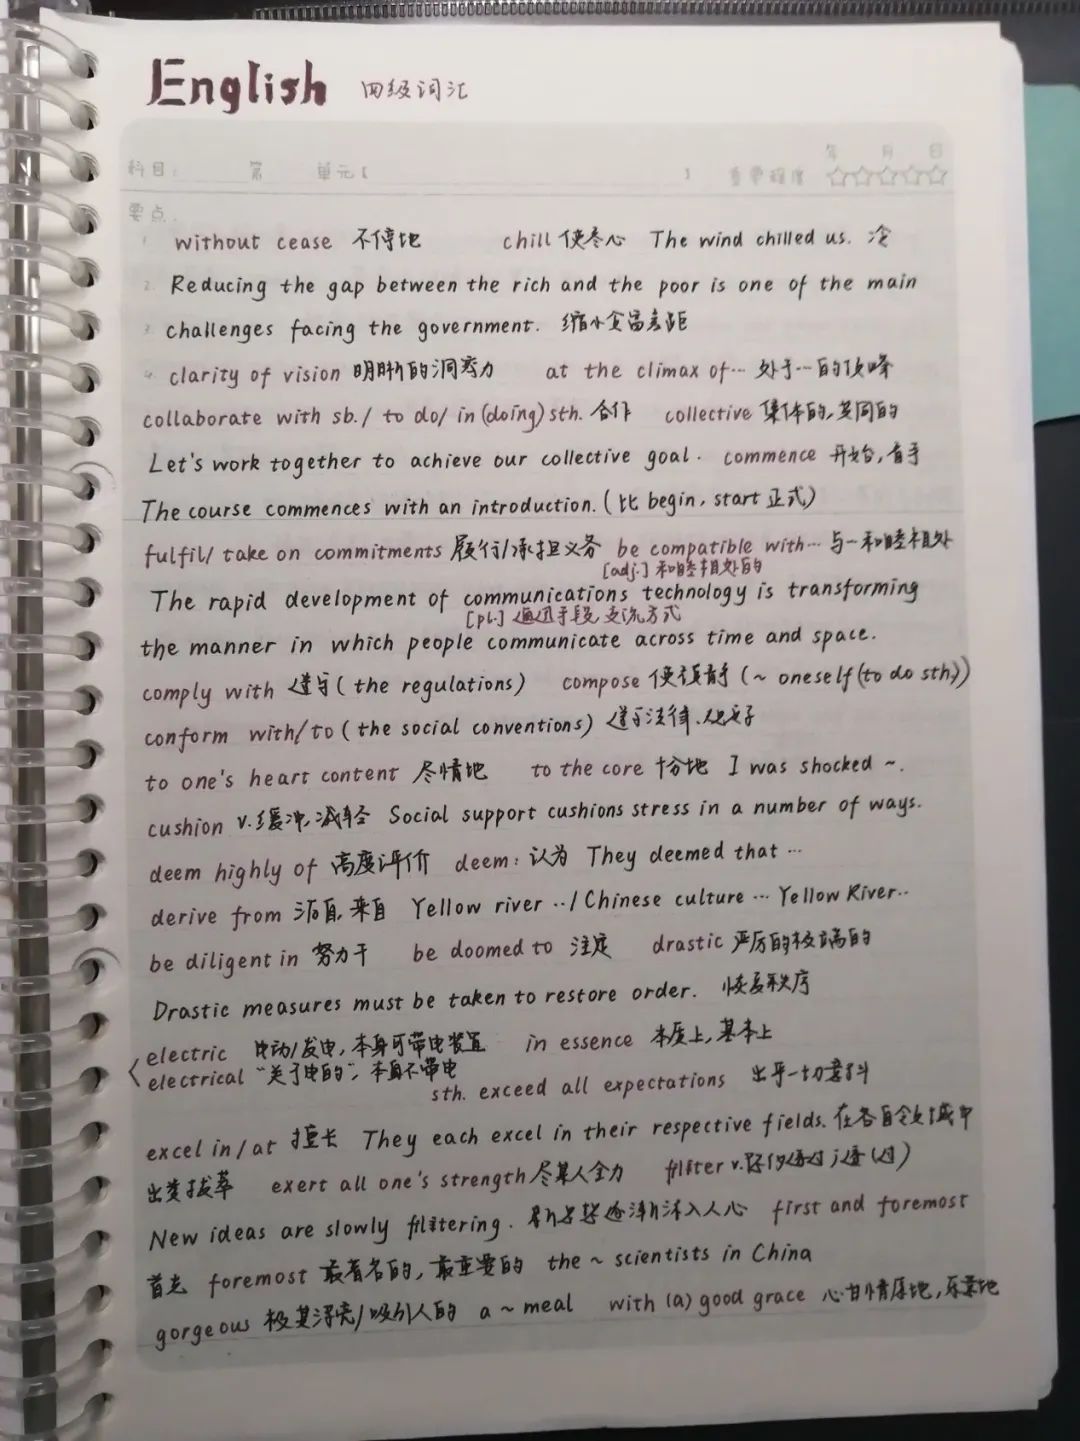 English 四级词汇
年 月 日
科目: 第 单元【 】 重要程度 ☆☆☆☆☆
要点:
1 without cease 不停地 chill 使寒心 The wind chilled us. 冷
2. Reducing the gap between the rich and the poor is one of the main
3. challenges facing the government. 缩小贫富差距
4. clarity of vision 明晰的洞察力 at the climax of… 处于…的顶峰
collaborate with sb./ to do/ in (doing) sth. 合作 collective 集体的,共同的
Let's work together to achieve our collective goal. commence 开始,着手
The course commences with an introduction. (比 begin, start 正式)
fulfil/ take on commitments 履行/承担义务 be compatible with… 与…和睦相处
[adj.] 和睦相处的
The rapid development of communications technology is transforming
[pl.] 通迅手段,交流方式
the manner in which people communicate across time and space.
comply with 遵守 ( the regulations) compose 使镇静 (~ oneself (to do sth))
conform with/to ( the social conventions) 遵守法律、
to one's heart content 尽情地 to the core 十分地 I was shocked ~.
cushion v.缓冲,减轻 Social support cushions stress in a number of ways.
deem highly of 高度评价 deem: 认为 They deemed that …
derive from 源自,来自 Yellow river ../ Chinese culture … Yellow River..
be diligent in 努力干 be doomed to 注定 drastic 严厉的极端的
Drastic measures must be taken to restore order. 恢复秩序
electric 电动/发电,本身可带电装置 in essence 本质上,基本上
electrical "关于电的",本身不带电
sth. exceed all expectations 出乎一切意料
excel in/at 擅长 They each excel in their respective fields. 在各自领域中
出类拔萃 exert all one's strength 尽某人全力 filter v.
New ideas are slowly filtering. 新思想逐渐深入人心 first and foremost
首先 foremost 最著名的,最重要的 the ~ scientists in China
gorgeous 极其漂亮/吸引人的 a ~ meal with (a) good grace 心甘情愿地,乐意地